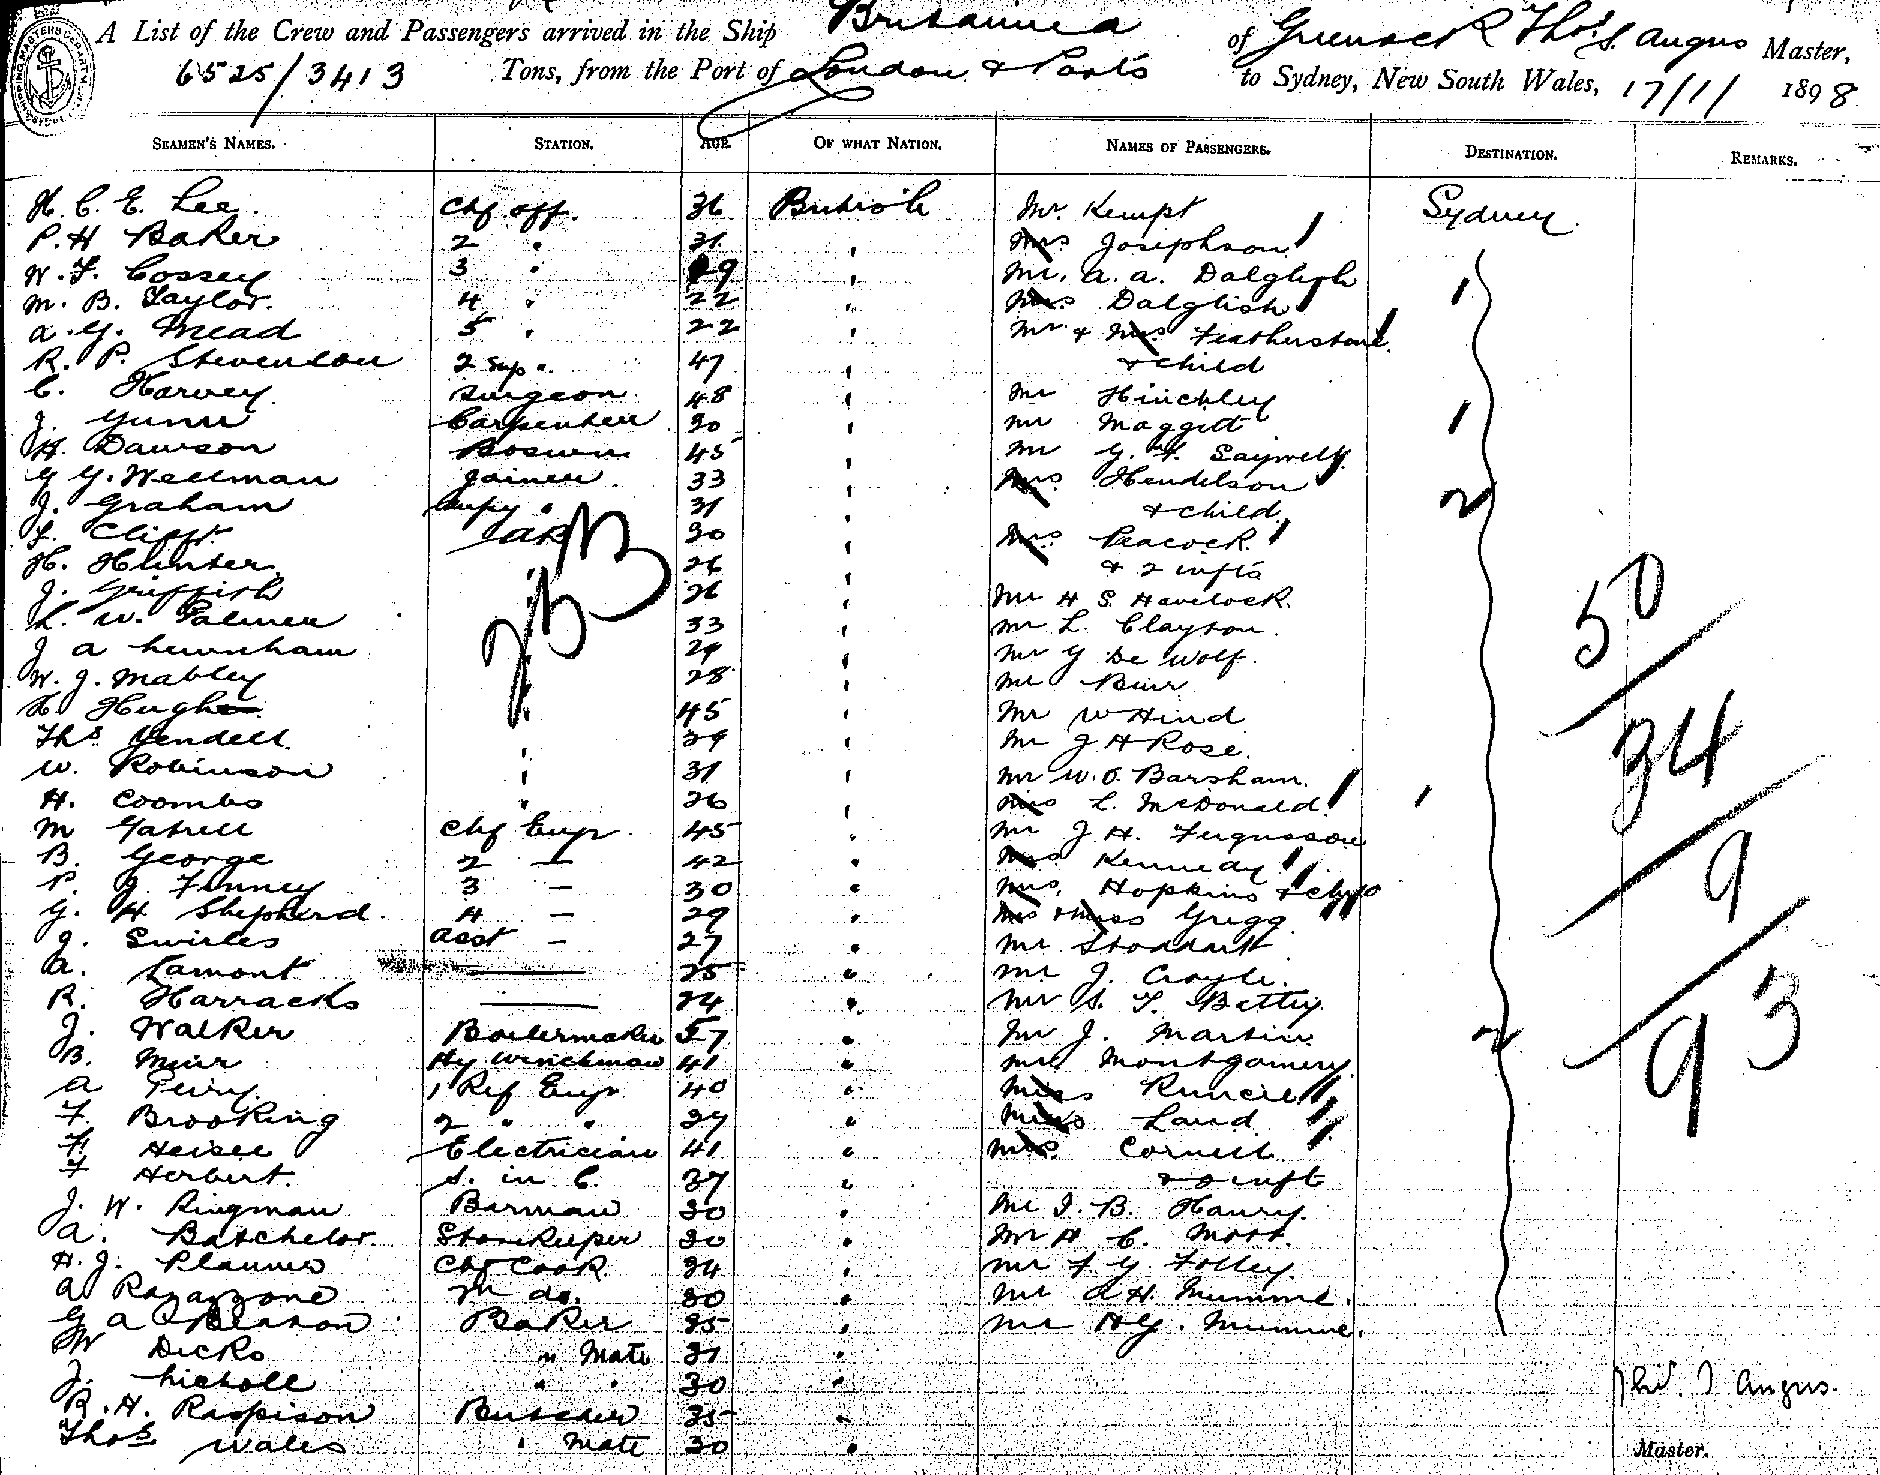 A List of the Crew and Passengers arrived in the Ship Britannia of Greenock Thos. S. Angus Master,
6525/3413 Tons, from the Port of London & Ports to Sydney, New South Wales, 17/1/ 1898
SEAMEN'S NAMES. STATION. AGE. OF WHAT NATION. NAMES OF PASSENGERS. DESTINATION. REMARKS.
H. C. E. Lee. Chf off. 36 British Mr. Kempt Sydney.
P. H Baker 2 " 31 " Mrs Josephson
W. F. Cossey 3 " 29 " Mr. A. A. Dalglish
M. B. Taylor. 4 " 22 " Mrs Dalglish 1
A. G. Mead 5 " 22 " Mr & Mrs Featherstone
R. P. Stevenson 2 Sup " 47 " & child
C. Harvey. Surgeon 48 " Mr Hinchley
J. Gunn Carpenter 30 " Mr Maggitt 1
H. Dawson Boswn 45 " Mr G. F. Saywell
G G. Wellman Joiner 33 " Mrs Hendelson
J. Graham Lmpr " 31 " & child 2
F. Clift AB 30 " Mrs Peacock
H. Hunter " 26 " & 2 infts
J. Griffith " 26 " Mr H S. Havelock.
L. W. Palmer " 33 " Mr L. Clayton.
J A Lewnham " 29 " Mr G De Wolf.
W. J. Mabley " 28 " Mr Burr
H. Hughes " 45 " Mr W Hind
Ths. Yendell " 29 " Mr J H Rose
W. Robinson " 31 " Mr W. O. Barsham.
H. Coombs " 26 " Miss L. McDonald 1
M Gatrell Chf Engr 45 " Mr J H. Fergusson
B. George 2 — 42 " Mrs Kennedy
P. J. Finney 3 — 30 " Mrs. Hopkins & child
G. H Shepherd. 4 — 29 " Mrs & Miss Gregg
J. Swirles Asst — 27 " Mr Stoddart
A. Lamont — 25 " Mr J. Croyle.
R. Harracks — 24 " Mr S. T. Betty.
J. Walker Boilermaker 57 " Mr J. Martin 2
B. Muir Hy Winchman 41 " Mr Montgomery
A Perry. 1 Ref Engr 40 " Miss Runciell
F. Brooking 2 " " 29 " Miss Laud
H. Heisel Electrician 41 " Mrs. Cornell
F Herbert. S. in C. 37 " & inft
J. W. Kingman Barman 30 " Mr I. B. Haury.
A. Batchelor. Storekeeper 30 " Mr H C. Mott.
H. J. Planner Chf Cook 34 " Mr F G Folley.
A Ragazzone 2n do. 30 " Mr A H. Mumme.
G A Beaton Baker 35 " Mr H G. Mumme.
W Dicks " Mate 31 "
J. Nicholl " " 30 "
R. H. Raspison Butcher 35 "
Thos Wales " Mate 30 "
253
50
34
9
93
Thos. S Angus.
Master.